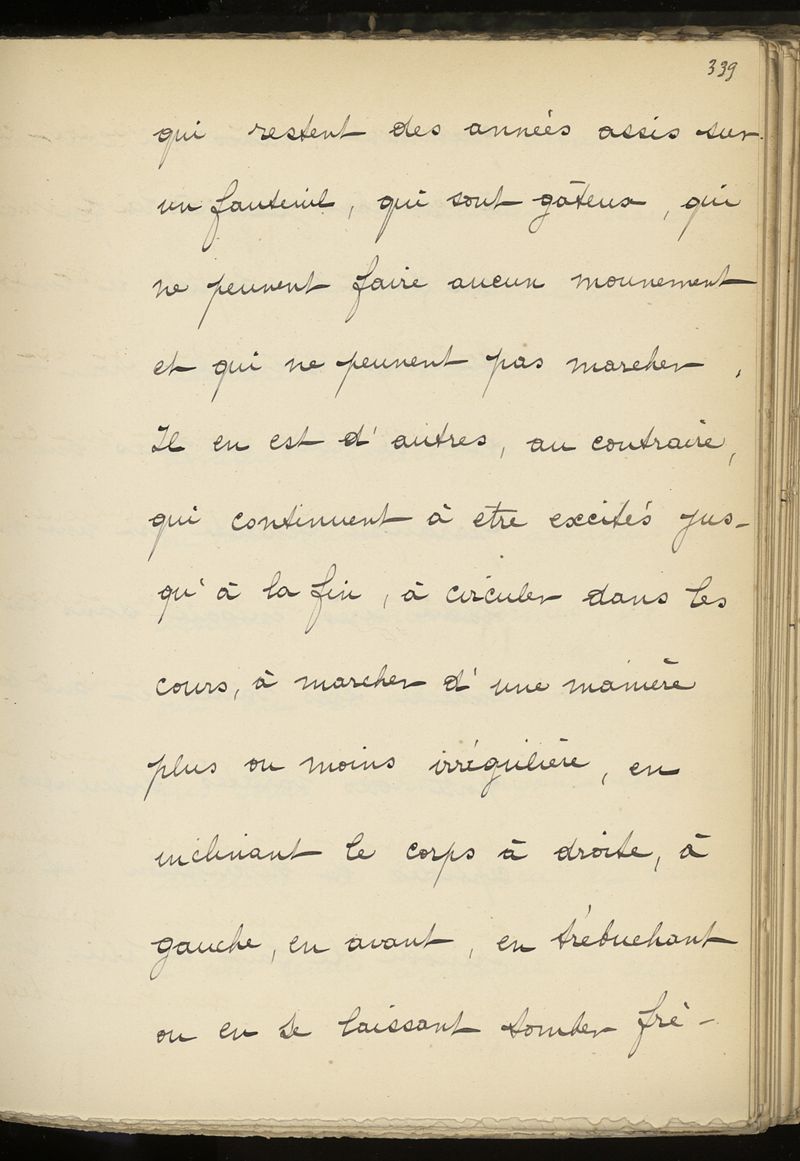 339
qui restent des années assis sur
un fauteuil, qui sont gâteux, qui
ne peuvent faire aucun mouvement
et qui ne peuvent pas marcher,
Il en est d'autres, au contraire,
qui continuent à être excités jus-
qu'à la fin, à circuler dans les
cours, à marcher d'une manière
plus ou moins irrégulière, en
inclinant le corps à droite, à
gauche, en avant, en trébuchant
ou en se laissant tomber fré-